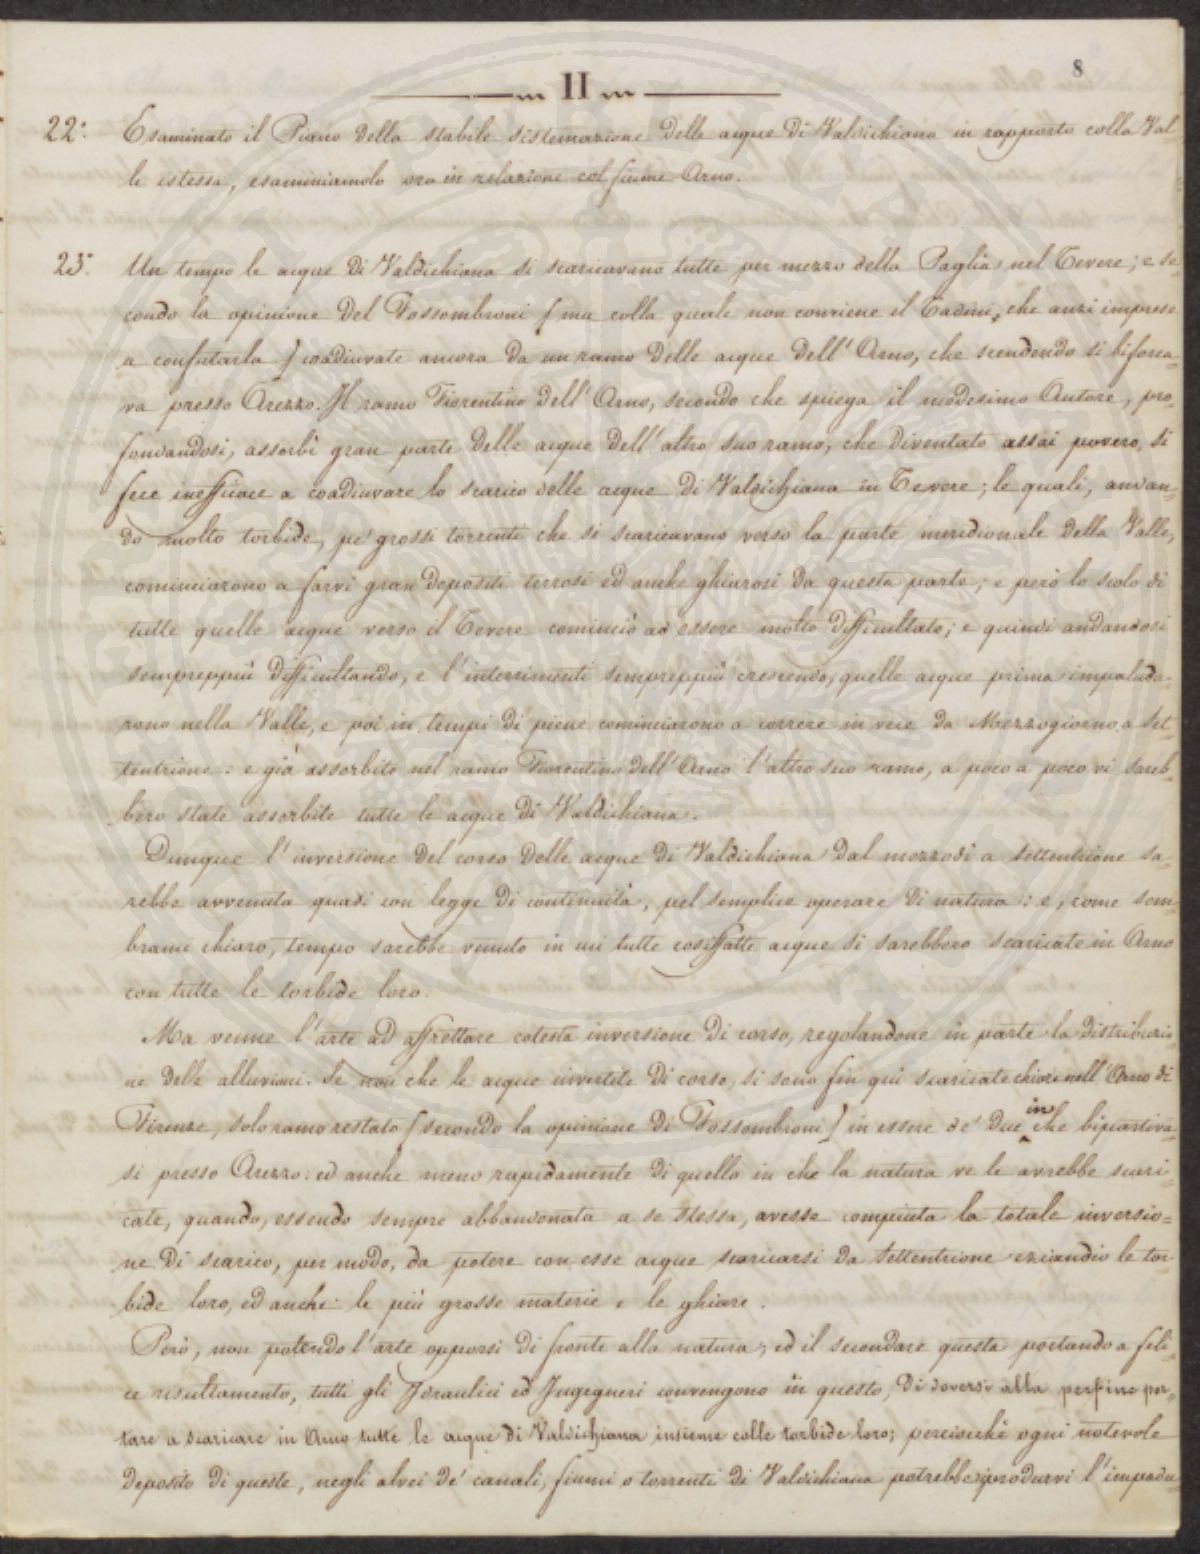 8
II
22. Esaminato il Piano della stabile sistemazione delle acque di Valdichiana in rapporto colla Val-
le istessa, esaminiamolo ora in relazione col fiume Arno.
23. Un tempo le acque di Valdichiana si scaricavano tutte per mezzo della Paglia nel Tevere; e se-
condo la opinione del Fossombroni (ma colla quale non conviene il Tadini, che anzi imprese
a confutarla) coadiuvate ancora da un ramo delle acque dell' Arno, che scendendo si biforca-
va presso Arezzo. Il ramo Fiorentino dell' Arno, secondo che spiega il medesimo Autore, pro-
fondandosi, assorbì gran parte delle acque dell' altro suo ramo, che diventato assai povero, si
fece inefficace a coadiuvare lo scarico delle acque di Valdichiana in Tevere; le quali, andan-
do molto torbide, pe' grossi torrenti che si scaricavano verso la parte meridionale della Valle,
cominciarono a farvi gran depositi terrosi ed anche ghiarosi da questa parte; e però lo scolo di
tutte quelle acque verso il Tevere cominciò ad essere molto difficultato; e quindi andandosi
sempreppiù difficultando, e l'interrimenti sempreppiù crescendo, quelle acque prima impaluda-
rono nella Valle, e poi in tempi di piene cominciarono a correre in vece da Mezzogiorno a Set-
tentrione: e già assorbito nel ramo Fiorentino dell' Arno l'altro suo ramo, a poco a poco vi sareb-
bero state assorbite tutte le acque di Valdichiana.
Dunque l' inversione del corso delle acque di Valdichiana dal mezzodì a settentrione sa-
rebbe avvenuta quasi con legge di continuità, pel semplice operare di natura: e, come sem-
brami chiaro, tempo sarebbe venuto in cui tutte cosiffatte acque si sarebbero scaricate in Arno
con tutte le torbide loro.
Ma venne l'arte ad affrettare cotesta inversione di corso, regolandone in parte la distribuzio-
ne delle alluvioni. Se non che le acque invertite di corso, si sono fin quì scaricate chiare nell' Arno di
Firenze, solo ramo restato (secondo la opinione di Fossombroni) in essere de' due in che bipartiva-
si presso Arezzo: ed anche meno rapidamente di quello in che la natura ve le avrebbe scari-
cate, quando, essendo sempre abbandonata a se stessa, avesse compiuta la totale inversio-
ne di scarico, per modo, da potere con esse acque scaricarsi da Settentrione eziandio le tor-
bide loro, ed anche le più grosse materie e le ghiare.
Però, non potendo l'arte opporsi di fronte alla natura; ed il secondare questa portando a feli-
ce risultamento, tutti gli Idraulici ed Ingegneri convengono in questo, di doversi alla perfine por-
tare a scaricare in Arno tutte le acque di Valdichiana insieme colle torbide loro; perciocchè ogni notevole
deposito di queste, negli alvei de' canali, fiumi o torrenti di Valdichiana potrebbe produrvi l'impadu-